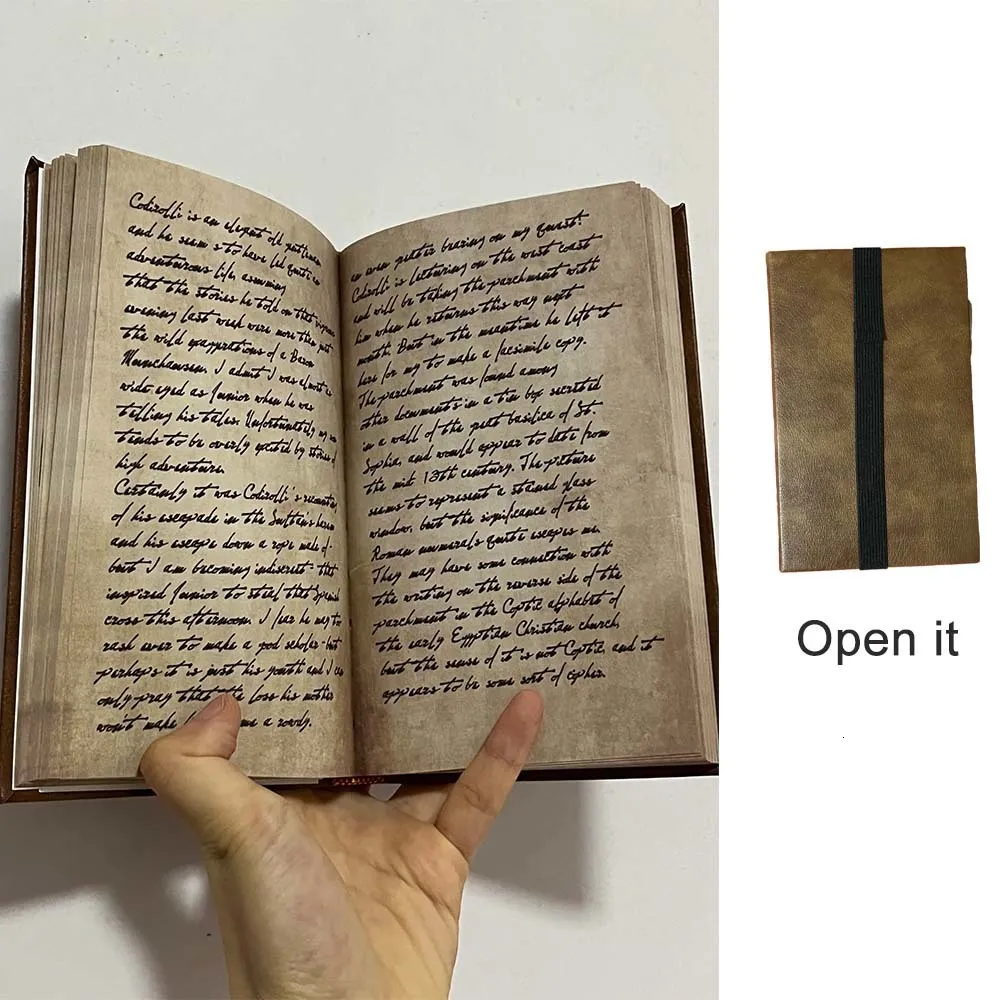 Codirolli is an elegant old gentleman
and he seems to have led quite an
adventurous life, assuming
that the stories he told on that
evening last week were more than just
the wild exaggerations of a Baron
Munchausen. I admit I was almost as
wide-eyed as Junior when he was
telling his tales. Unfortunately my son
tends to be overly excited by stories of
high adventure.
Certainly it was Codirolli's recounting
of his escapade in the Sultan's harem
and his escape down a rope made of-
but I am becoming indiscreet-that
inspired Junior to steal that Spanish
cross this afternoon. I fear he may to
rash ever to make a good scholar-but
perhaps it is just his youth and I can
only pray that the loss his mother
won't make me a rowdy.
an even greater bearing on my quest!
Codirolli is lecturing on the west coast
and will be taking the parchment with
him when he returns this way next
month. But in the meantime he left it
here for my to make a facsimile copy.
The parchment was found among
other documents in a tin box secreted
in a wall of the great basilica of St.
Sophia, and would appear to date from
the mid 13th century. The picture
seems to represent a stained glass
window, but the significance of the
Roman numerals quite escapes me.
They may have some connection with
the writing on the reverse side of the
parchment in the Coptic alphabet of
the early Egyptian Christian church,
but the sense of it is not Coptic, and it
appears to be some sort of cipher.
Open it